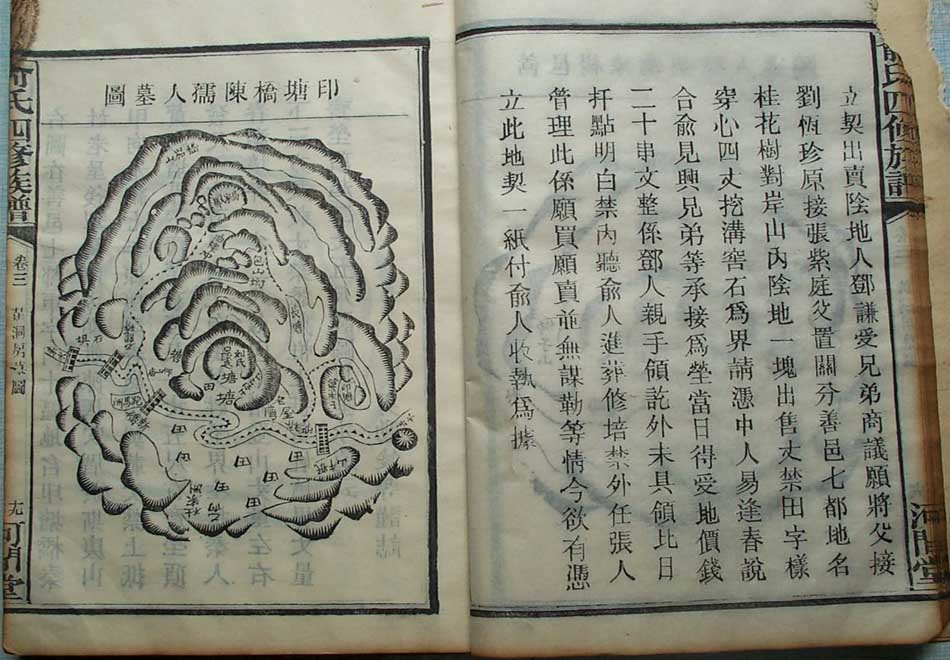 氏四修族譜
河間堂
立契出賣陰地人鄧謙愛兄弟商議願將父接
劉恆珍原接張紫庭父置關分善邑七都地名
桂花樹對岸山內陰地一塊出售丈禁田字樣
穿心四丈挖溝窖石為界請憑中人易逢春說
合俞見興兄弟等承接為塋當日得受地價錢
二十串文整係鄧人親手領訖外未具領比日
扦點明白禁內聽俞人進葬修培禁外任張人
管理此係願買願賣並無謀勒等情今欲有憑
立此地契一紙付俞人收執為據
印塘橋陳孺人墓圖
塘
塘
田
田
田
田
田
田
田
氏四修族譜
卷三
圖
十九
河間堂